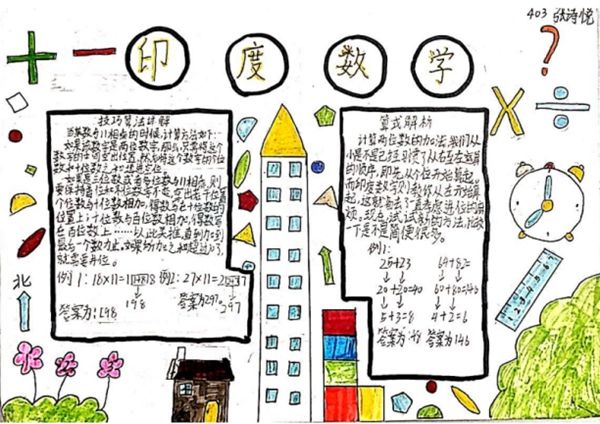 403 张诗悦
印度数学
技巧算法详解
当某数与11相乘的时候,计算方法如下:
如果该数字是两位数字,那么,只要将这个
数字的中间空出位置,然后将这个数字的个位
数和十位数之和填进空位。
如果是三位数或多位数与11相乘,则
要保持首位和末位数字不变,空出位置,把
个位数与十位数相加,得数写在十位数的
位置上;十位数与百位数相加,得数写
在百位数上……以此类推,直到加到
最后一个数为止。如果努力加之和超过10,
就需要进位。
例1:18×11=1(1+8)8 例2:27×11=2(2+7)7
198
297
答案为:198
答案为297。
北
算式解析
计算两位数的加法,我们从
小是不是已经习惯了从右至左竖算
的顺序,即先从个位开始算起,
而印度数学则教你从左开始算
起,这就省去了一直考虑进位的麻
烦,现在试试新的方法,比较
一下是不是简便很多。
例1:
25+23 64+82=
20+20=40 60+80=140
5+3=8 4+2=6
答案为:48 答案为146